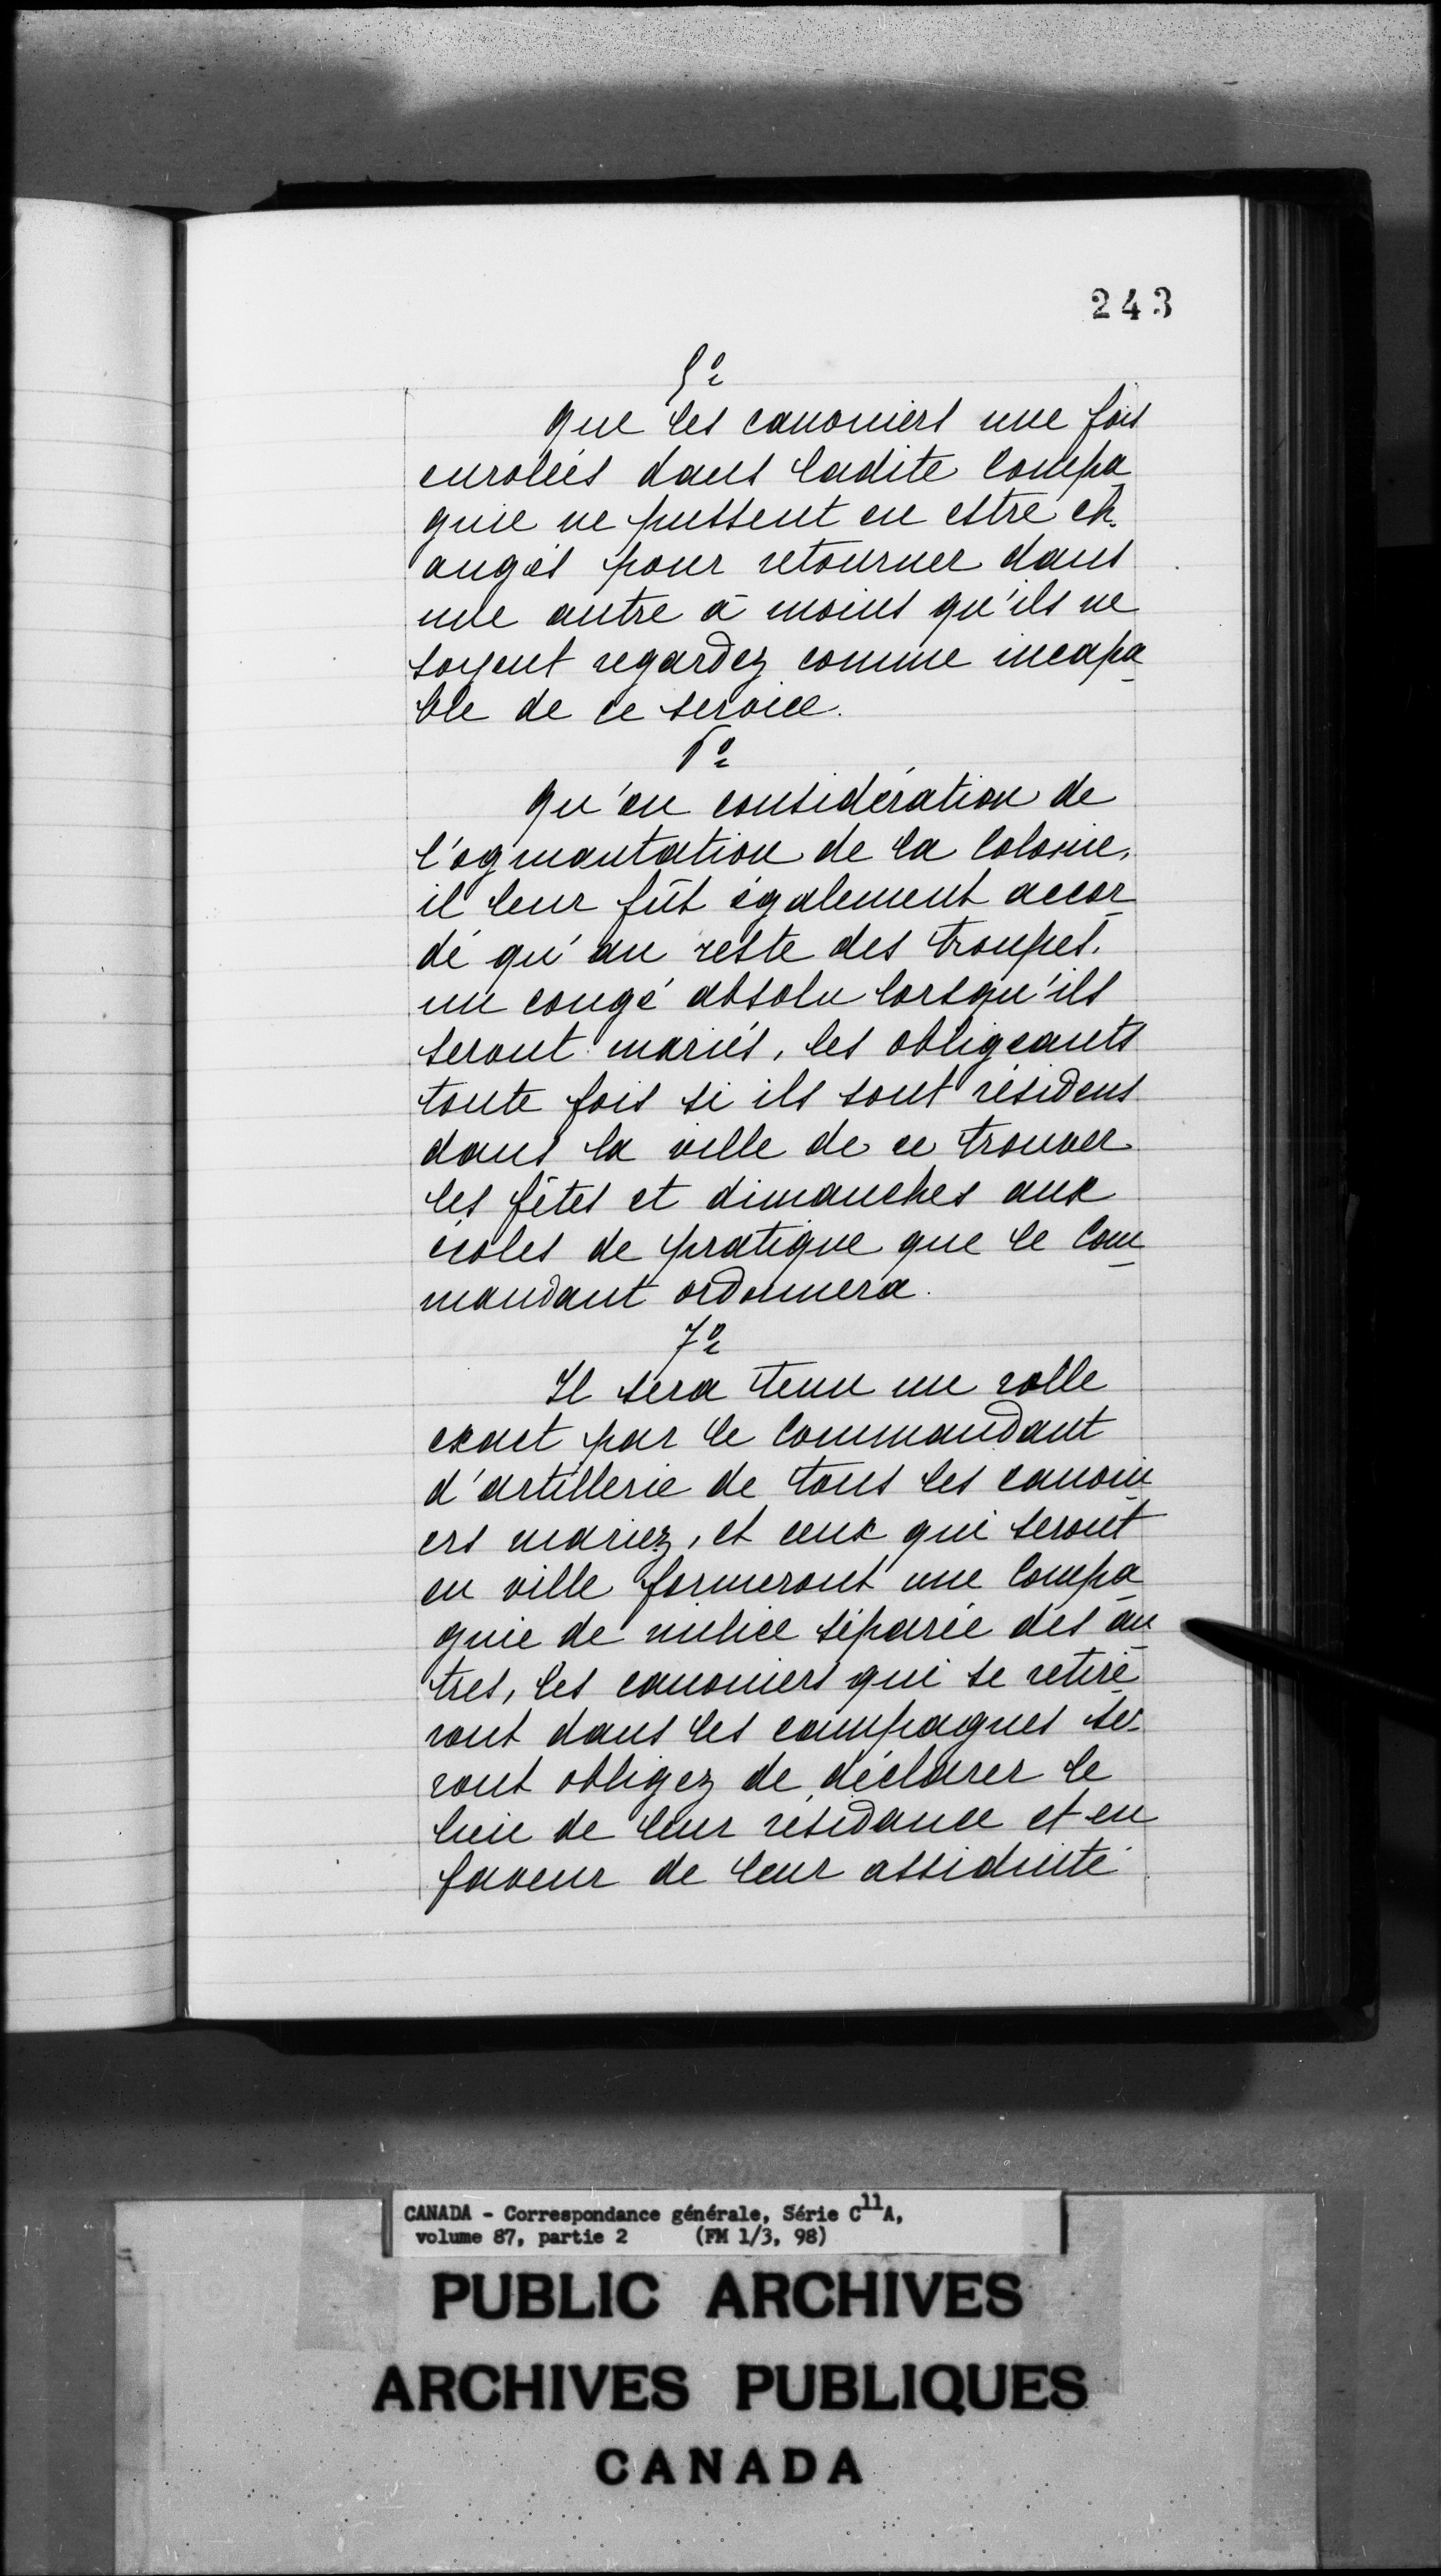 243
5º
Que les canoniers une fois
enrolées dans ladite Compa
gnie ne pussent en estre ch.
angés pour retourner dans
une autre à moins qu'ils ne
soyent regardez comme incapa
ble de ce service.
6º
Qu'en considération de
l'ogmantation de la Colonie,
il leur fût également accor
dé qu'au reste des troupes,
un congé absolu lorsqu'ils
seront mariés, les obligeants
toute fois si ils sont résidens
dans la ville de ce trouver
les fêtes et dimanches aux
écoles de pratique que le Com
mandant ordonnera.
7º
Il sera tenu un rolle
exact par le Commandant
d'artillerie de tous les canoni
ers mariez, et ceux qui seront
en ville formeront une Compa
gnie de milice séparée des au
tres, les canoniers qui se retire
ront dans les campagnes se
ront obligez de déclarer le
lieu de leur résidance et en
faveur de leur assiduité
CANADA - Correspondance générale, Série C11A,
volume 87, partie 2 (FM 1/3, 98)
PUBLIC ARCHIVES
ARCHIVES PUBLIQUES
CANADA